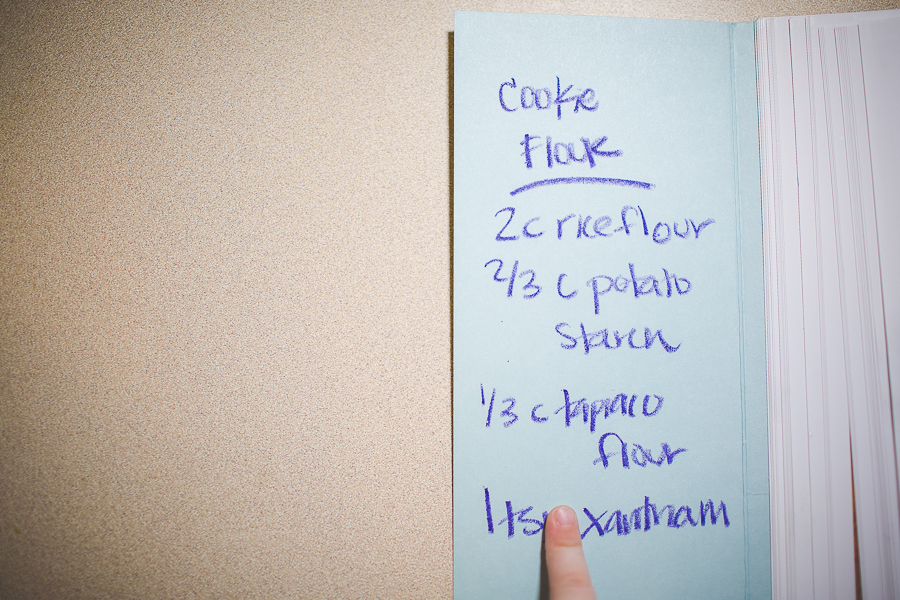 Cookie
Flour
2 c rice flour
2/3 c potato
starch
1/3 c tapiaco
flour
1 tsp xantham